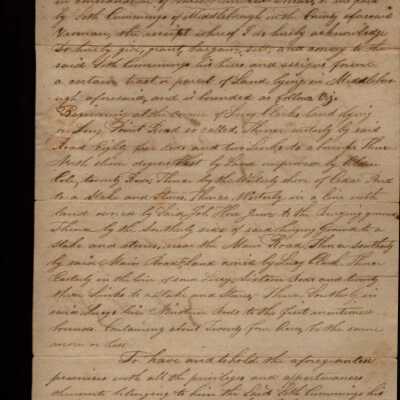 in consideration of
by Seth Cummings of Middleborough in the County aforesaid
Yeoman, the receipt whereof I do hereby acknowledge
Do hereby give, grant, bargain, sell, and convey to the
said Seth Cummings his heirs and assigns forever
a certain tract or parcel of Land lying in Middlebor-
ough aforesaid, and is bounded as follows Viz.
Beginning at the corner of Lucy Clarks land lying
on Long Point Road so called, Thence by said
Road Eighty five rods and two Links to a
North eleven degrees East by Land improved by
Cole, twenty four, Thence by the Westerly side of Cedar
to a Stake and Stones, Thence Westerly in a line with
land owned by Said to the Burying ground
Thence by the Southerly side of said Burying Ground to a
stake and stones, near the Main Road, Thence Southerly
by said Main Road to land owned by Lucy Clark, Thence
Easterly in the line of said Lucy, Sixteen rods and twenty
three Links to a Stake and Stones, Thence Southerly in
said Lucys line Nineteen rods to the first mentioned
bounds. Containing about Twenty four Acres, be the same
more or less.
To have and to hold the aforegranted
premises with all the privileges and appurtenances
thereunto belonging to him the Said Seth Cummings his